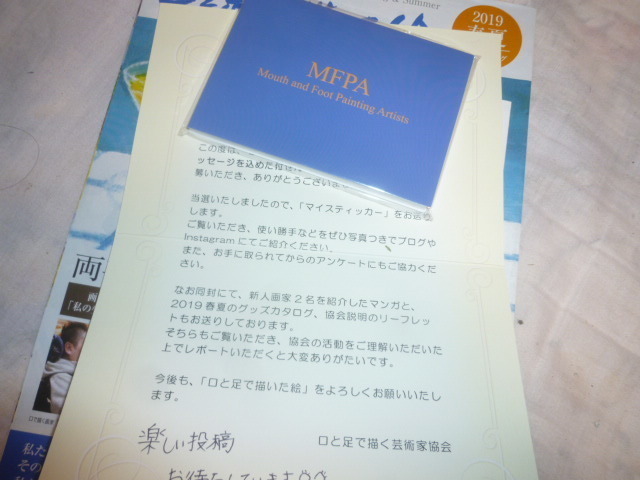 & Summer
2019
春夏
MFPA
Mouth and Foot Painting Artists
この度は、
ッセージを込めた
募いただき、ありがとうございま
当選いたしましたので、「マイスティッカー」をお送り
します。
ご覧いただき、使い勝手などをぜひ写真つきでブログや
Instagramにてご紹介ください。
また、お手に取られてからのアンケートにもご協力くだ
さい。
なお同封にて、新人画家2名を紹介したマンガと、
2019春夏のグッズカタログ、協会説明のリーフレッ
トもお送りしております。
そちらもご覧いただき、協会の活動をご理解いただいた
上でレポートいただくと大変ありがたいです。
今後も、「口と足で描いた絵」をよろしくお願いいたし
ます。
口と足で描く芸術家協会
楽しい投稿
お待たしています
両
「私の
口で描く画家
私た
その